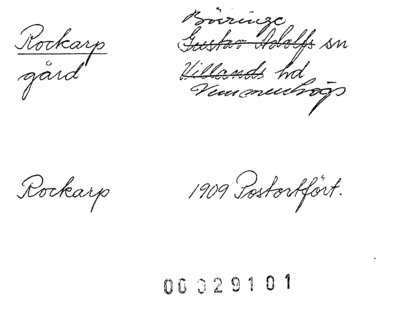 Böringe
Rockarp Gustav Adolfs sn
gård Villands hd
Vemmenhögs
Rockarp 1909 Postortfört.
00029101